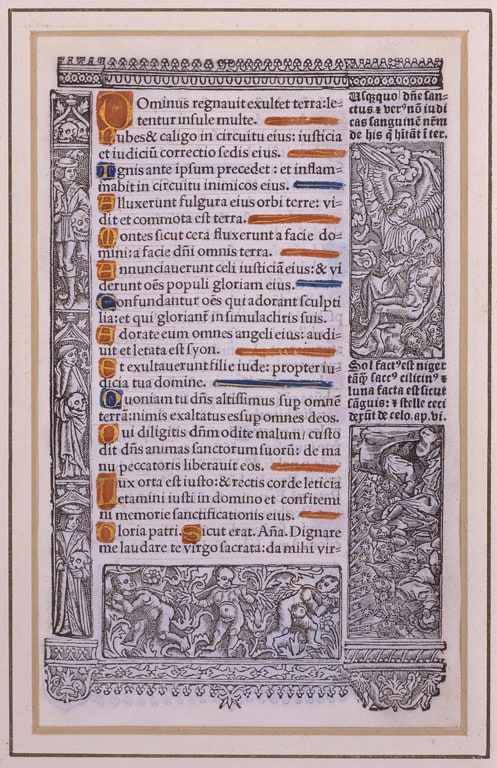 Dominus regnauit exultet terra:le-
tentur insule multe.
Nubes & caligo in circuitu eius: iusticia
et iudiciū correctio sedis eius.
Ignis ante ipsum precedet : et inflam-
mabit in circuitu inimicos eius.
Alluxerunt fulgura eius orbi terre: vi-
dit et commota est terra.
Montes sicut cera fluxerunt a facie do-
mini: a facie dn̄i omnis terra.
Annunciauerunt celi iusticiā eius: & vi
derunt oēs populi gloriam eius.
Confundantur oēs qui adorant sculpti
lia: et qui gloriant in simulachris suis.
Adorate eum omnes angeli eius: audi-
uit et letata est syon.
Et exultauerunt filie iude: propter iu-
dicia tua domine.
Quoniam tu dn̄s altissimus sup omnē
terrā: nimis exaltatus es sup omnes deos.
Qui diligitis dn̄m odite malum/ custo
dit dn̄s animas sanctorum suorū: de ma
nu peccatoris liberauit eos.
Lux orta est iusto: & rectis corde leticia
Letamini iusti in domino et confitemi
ni memorie sanctificationis eius.
Gloria patri. Sicut erat. Aña. Dignare
me laudare te virgo sacrata: da mihi vir-
Usq3quo dn̄e san-
ctus & verꝰ nō iudi
cas sanguinē nr̄m
de his q̄ hītāt ī ter.
Sol factꝰ est niger
tāq̄ saccꝰ cilicinꝰ &
luna facta est sicut
sāguis: & stelle ceci
derūt de celo. ap. vi.